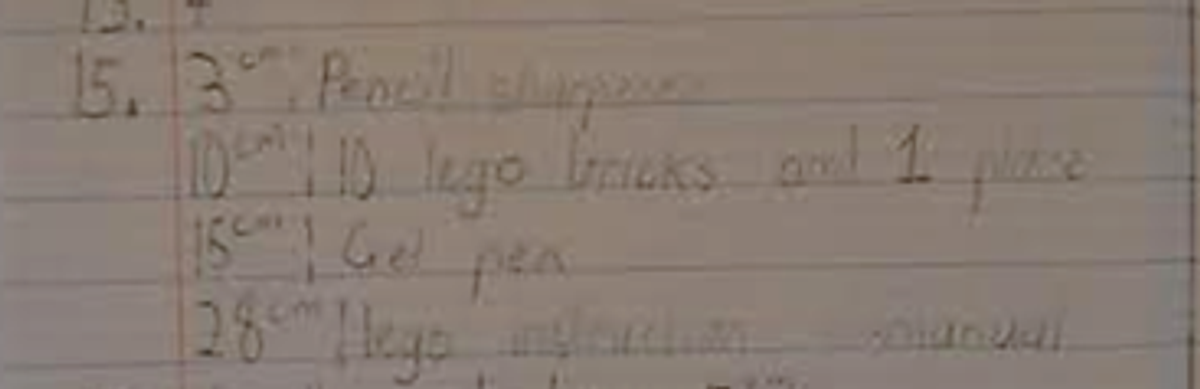 15. 3cm: Pencil sharpener
10cm: 10 lego bricks and 1 plate
15cm: Gel pen
28cm: lego instruction manual